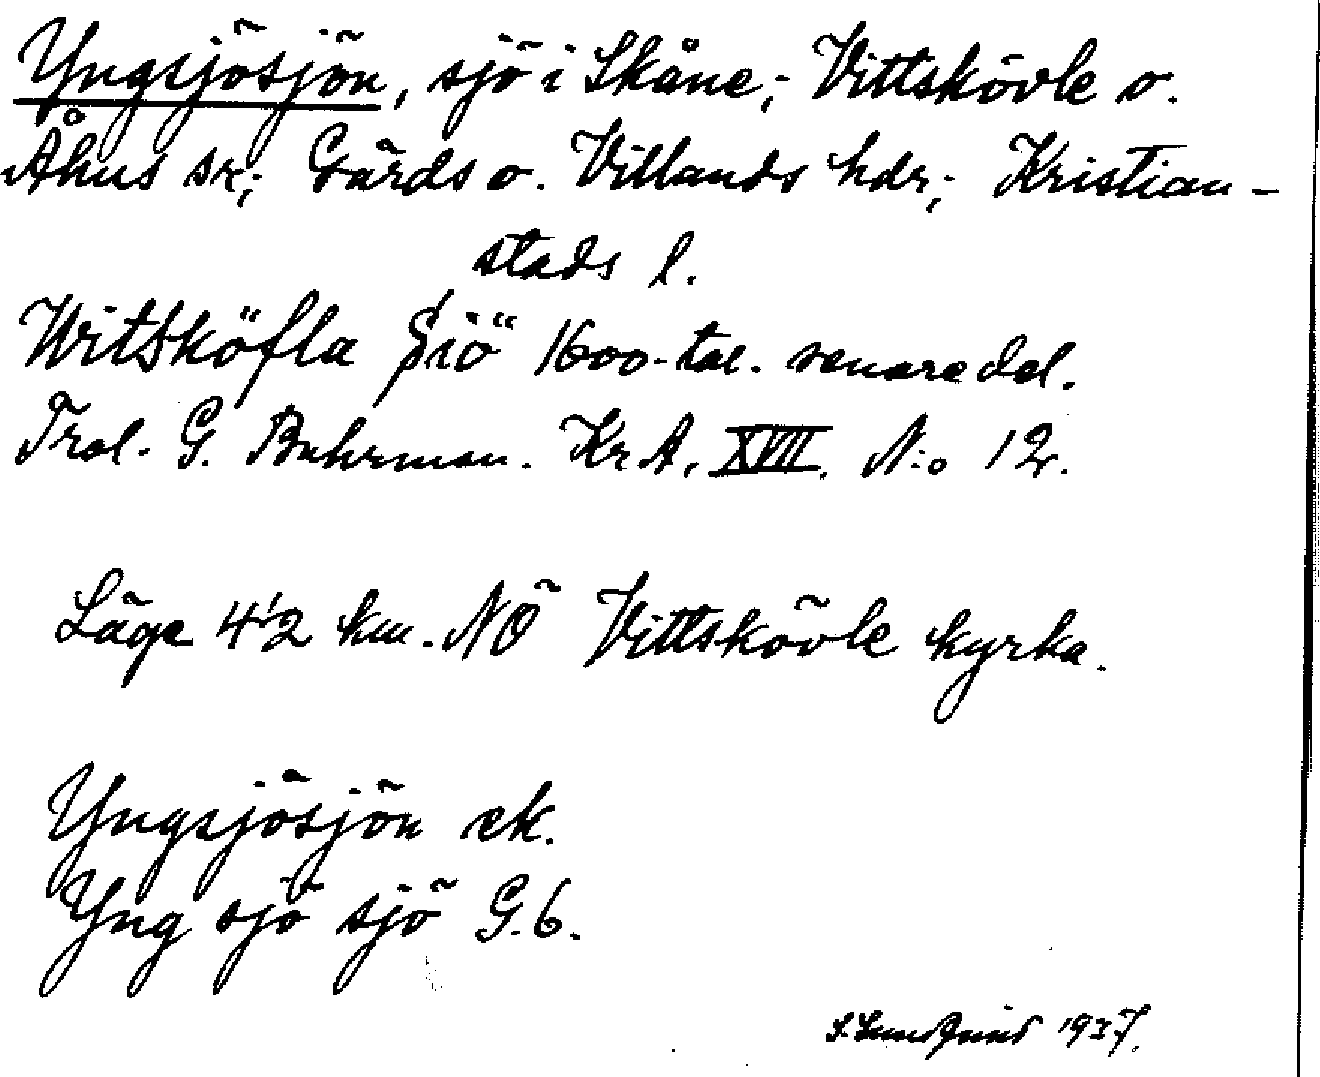 Yngsjösjön, sjö i Skåne; Vittskövle o.
Åhus sr; Gärds o. Villands hdr; Kristian-
stads l.
Witsköfla Siö 1600-tal. senare del.
Trol. G. Buhrman. Kr.A. XVII. N:o 12.
Läge 4 1/2 km. NÖ Vittskövle kyrka.
Yngsjösjön ek.
Yng sjö sjö G.6.
1937.